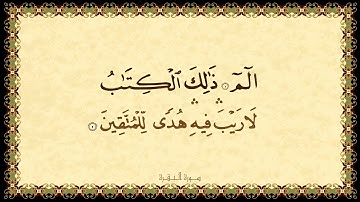 الٓمٓ ١ ذَٰلِكَ ٱلْكِتَـٰبُ
لَا رَيْبَ ۛ فِيهِ ۛ هُدًى لِّلْمُتَّقِينَ ٢
سورة البقرة